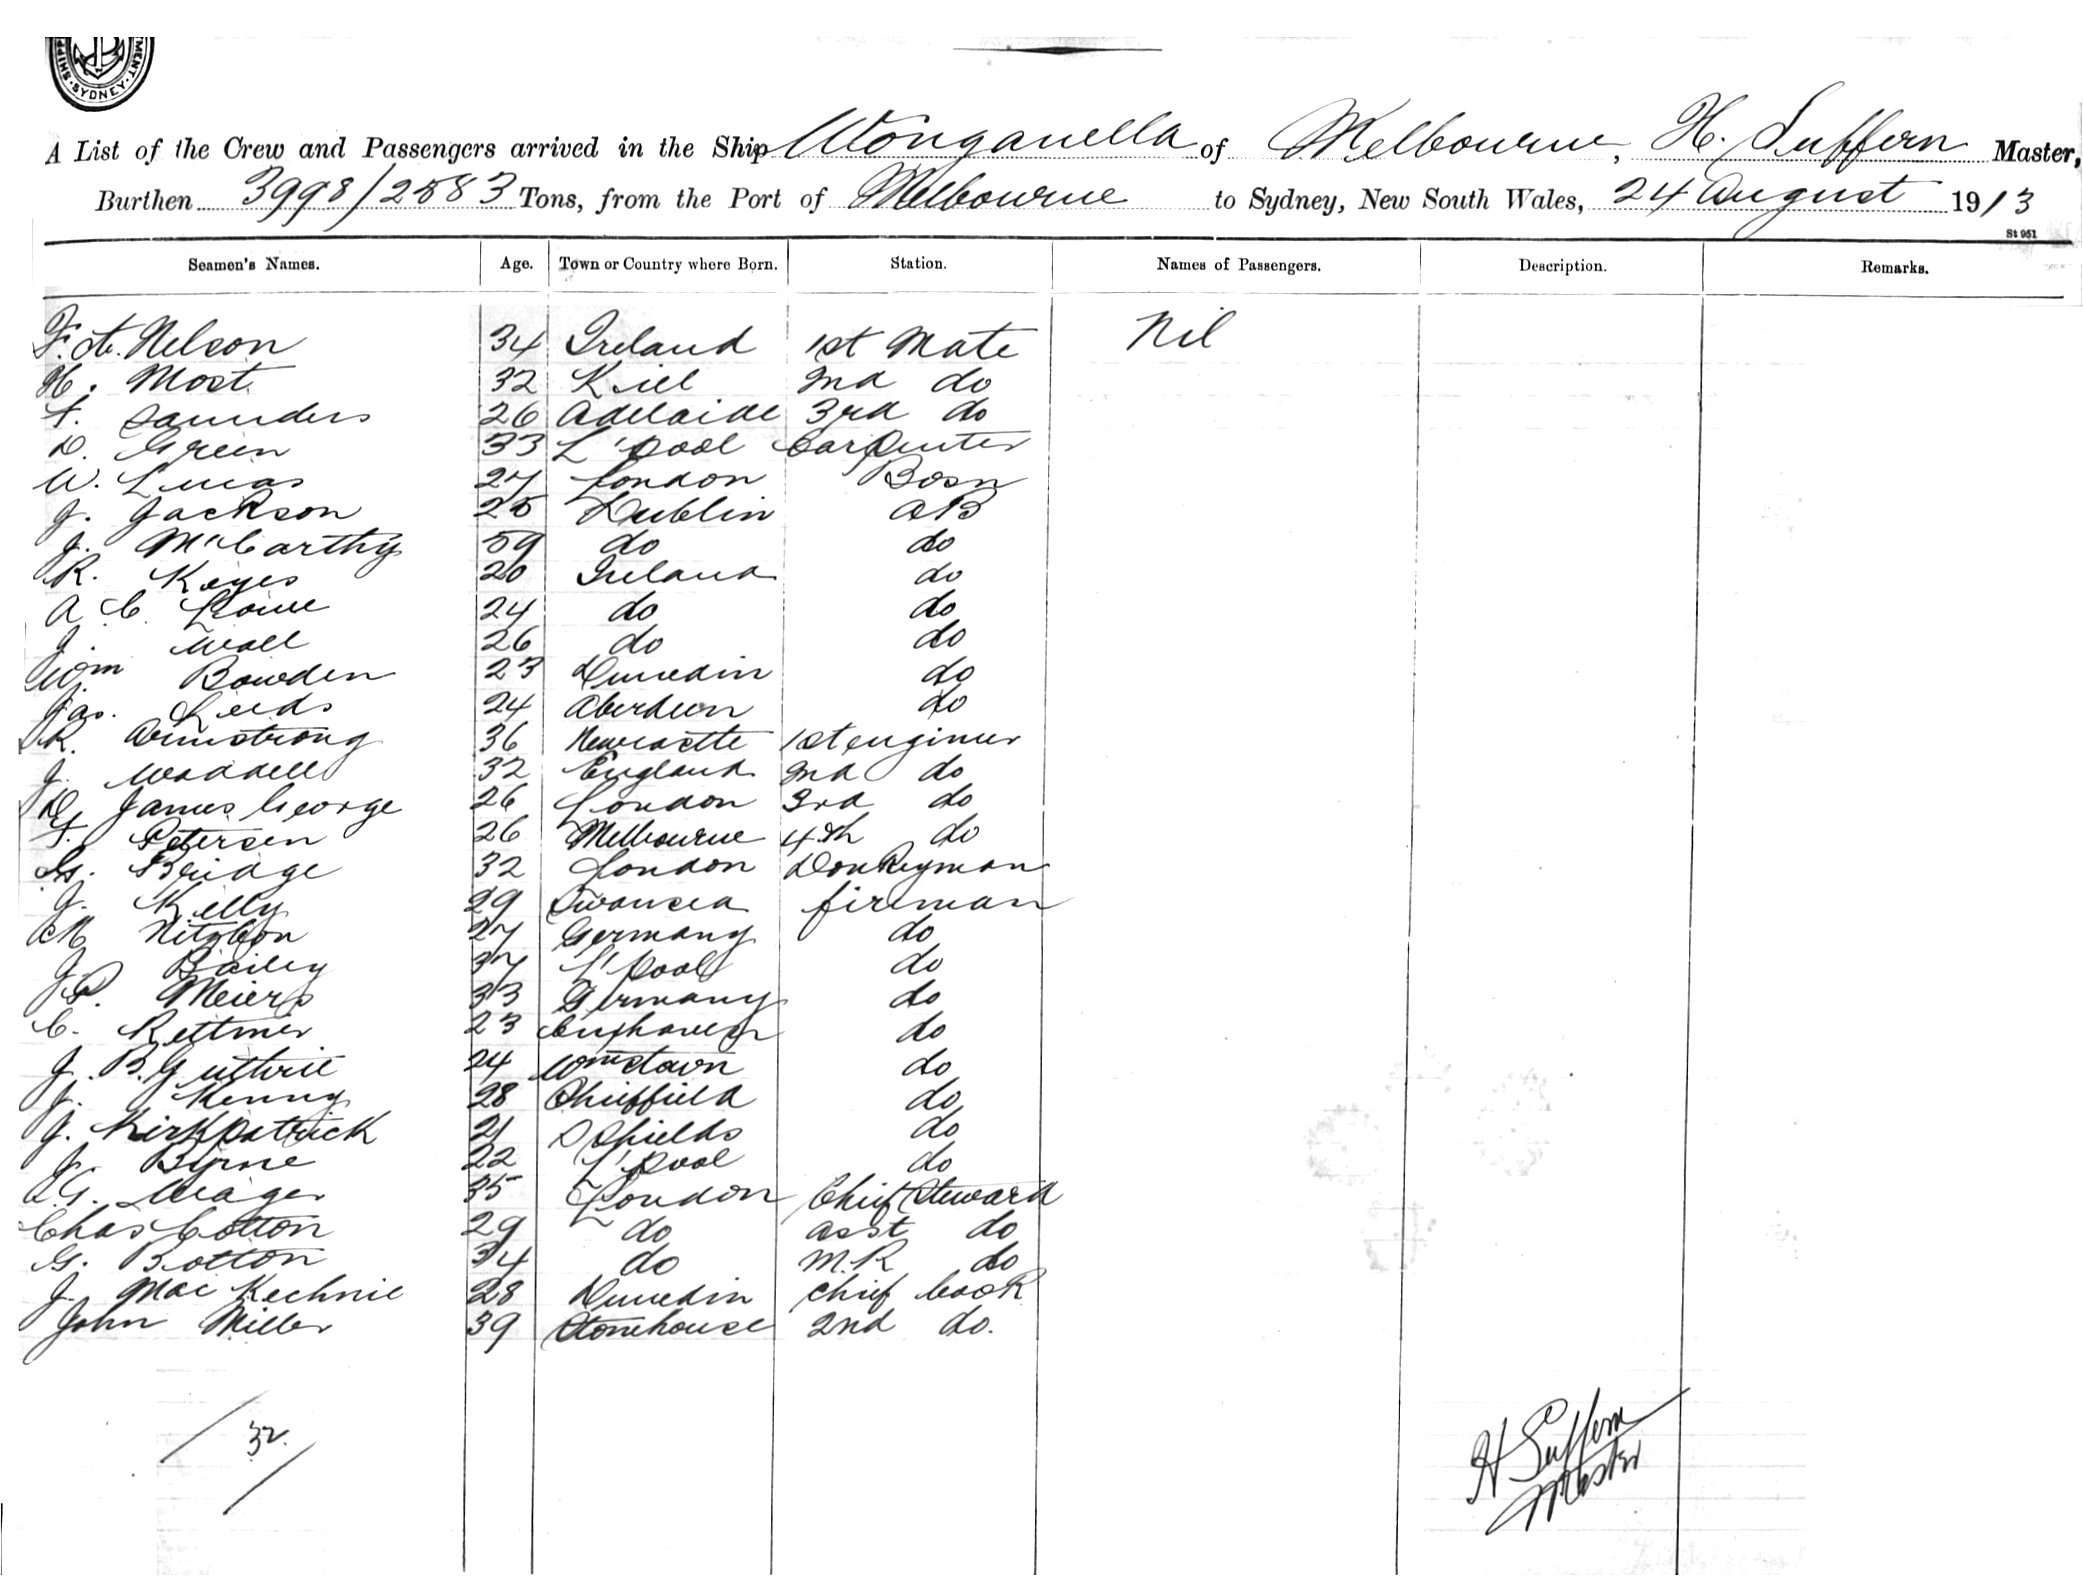 MENT. SYDNEY. SHIPP
A List of the Crew and Passengers arrived in the Ship Wonganella of Melbourne, H. Suffern Master,
Burthen 3998/2583 Tons, from the Port of Melbourne to Sydney, New South Wales, 24 August 1913
St 951
Seamen's Names. Age. Town or Country where Born. Station. Names of Passengers. Description. Remarks.
F. A. Nelson 34 Ireland 1st Mate Nil
H. Most 32 Kiel 2nd do
F. Saunders 26 Adelaide 3rd do
D. Green 33 L'pool Carpenter
W. Lucas 27 London Bosn
J. Jackson 25 Dublin AB
J. McCarthy 59 do do
R. Keyes 20 Ireland do
A C. Lowe 24 do do
J. Wall 26 do do
Wm Bowden 23 Dunedin do
Jas. Leeds 24 Aberdeen do
R. Armstrong 36 Newcastle 1st engineer
J. Waddell 32 England 2nd do
D. James George 26 London 3rd do
F. Petersen 26 Melbourne 4th do
Bridge 32 London Donkeyman
J. Kelly 29 Swansea fireman
27 Germany do
J. Bailey 37 L'pool do
P. Meiers 33 Germany do
C. Rettmer 23 Cuxhaven do
J. B. Guthrie 24 Wmstown do
J. Kenny 28 Shieffield do
J. Kirkpatrick 21 S Shields do
J. Byrne 22 L'pool do
Meager 35 London Chief Steward
Chas Cotton 29 do asst do
G. Botton 34 do M.R do
J. MacKechnie 28 Dunedin Chief Cook
John Miller 39 Stonehouse 2nd do.
32.
H Suffern
Master